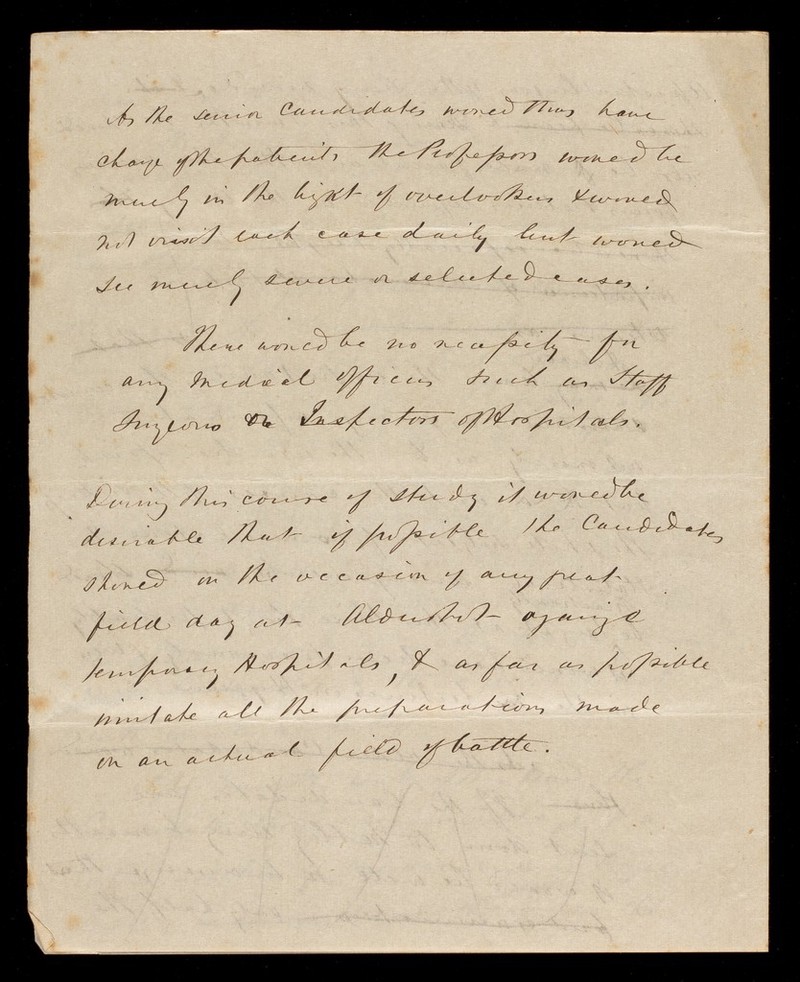 As the senior Candidates would thus have
charge of the patients the Professors would be
merely in the light of overlookers & would
not visit each case daily but would
see merely severe or selected cases.
There would be no necessity for
any Medical officers such as Staff
Surgeons or Inspectors of Hospitals.
During this course of study it would be
desirable that if possible the Candidates
should on the occasion of any great
field day at Aldershot organize
temporary Hospitals, & as far as possible
imitate all the preparations made
on an actual field of battle.